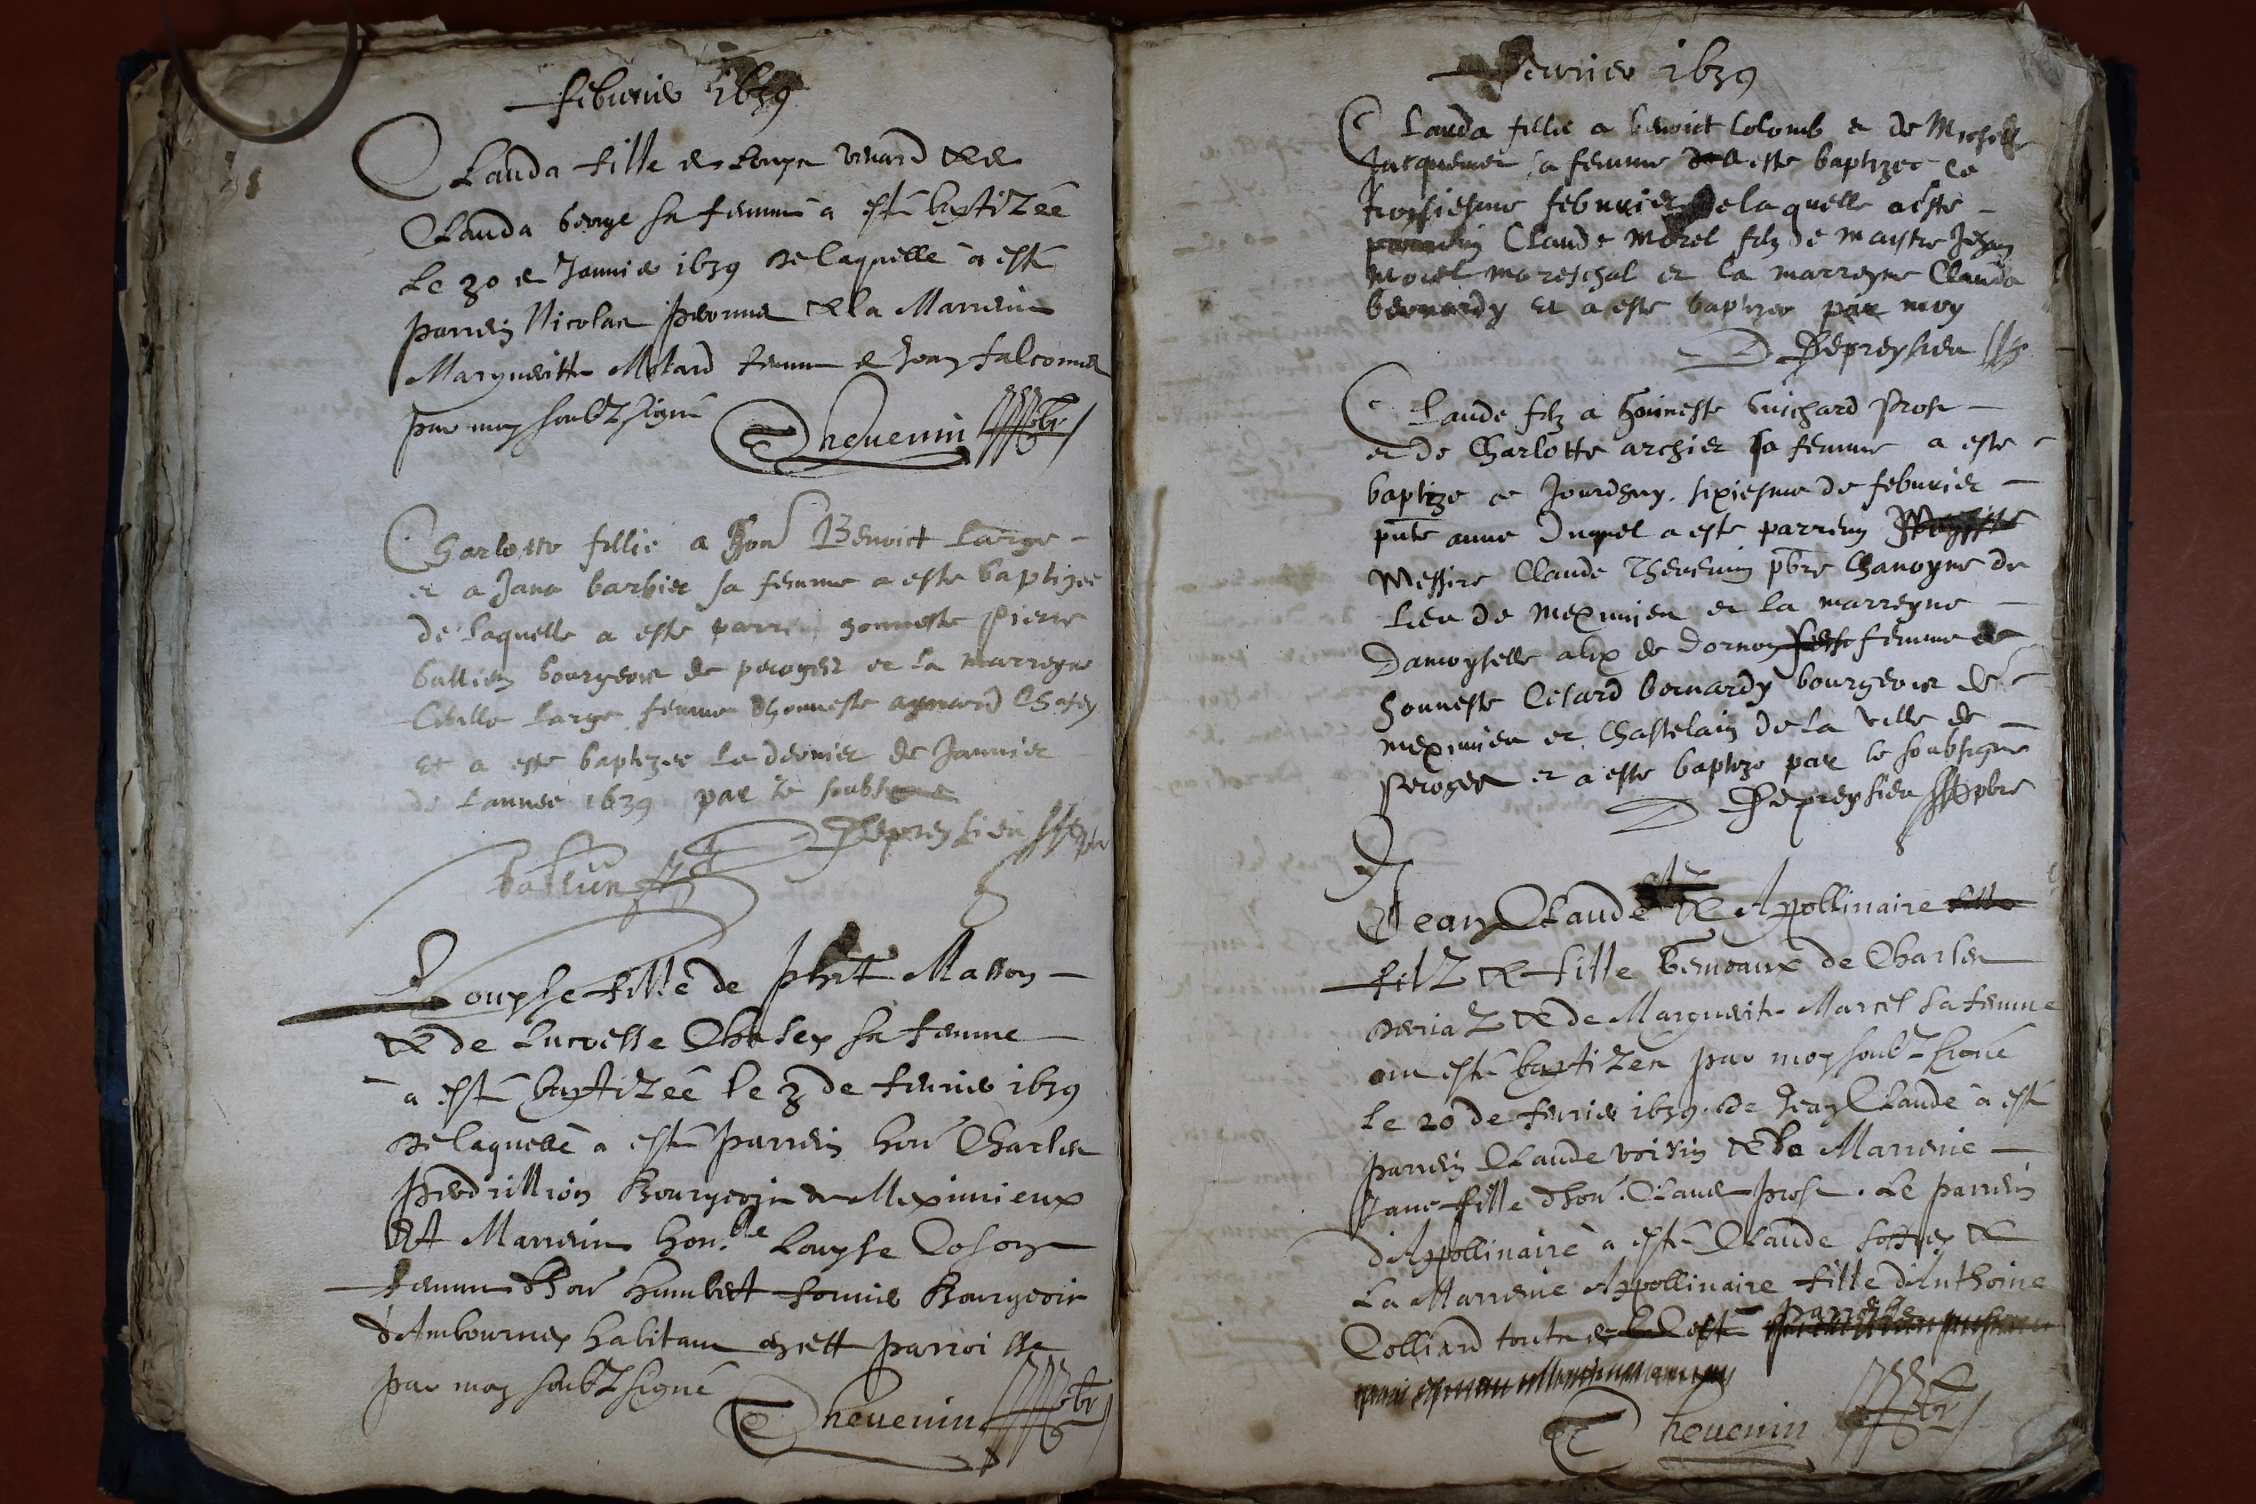 feburier 1639
Clauda fille de Loüys venard & de
Clauda George sa femme a esté baptizeé
Le 30 de Januier 1639 de laquelle à esté
parrein Nicolas & la Marreine
Margueritte Motard femme de Jean falconnet
par moy soubzsigné
Theuenin pbr
Charlotte fillie a hon Benoict Large
et a Jana barbier sa femme a este baptizee
de laquelle a este parrein honneste Pierre
battien bourgeois de peroges et la marreyne
Large femme dhonneste aymard Chasey
Et a este baptizee le dernier de Januier
de lannee 1639 par le soubsigne
Depreysieu pbr
Louyse fillé de phit Masson
& de Lucresse Chasey sa femme
à esté baptizeé le 3 de feurier 1639
de laquellé a esté parrein hon Charles
perdrillion Bourgeois de Meximieux
Et Marreine hon.ble Louyse
femme d'hon humbert fornier Bourgeois
d'Ambourney habitant en cett parroisse
par moy soubzsigné
Theuenin pbr
feurier 1639
Clauda fillie a benoict Colomb et de Michelle
Jacquemet sa femme a este baptizee le
troysiesme feburier de laquelle a este
parrein Claude Morel filz de maistre Jehan
Morel mareschal et la marreyne Clauda
bernardy Et a este baptizee par moy
Depreysieu
Claude filz a honneste Guichard Prost
et de Charlotte archier sa femme a este
baptize ce Jourdhuy sixiesme de feburier
pnte annee Duquel a este parreyn
Messire Claude Theuenin pbre Chanoyne du
lieu de meximieu et la marreyne
Damoyselle alix de Dornon femme de
honneste Cesard bernardy bourgeois de
meximieu et Chastelain de la ville de
Peroges et a este baptize par le soubsigne
Depreysieu pbre
Jean Claude & Apollinaire
filz & fille Gemeaux de Charles
& de Marguerite Marcel sa femme
ont esté baptizes par moy soubzsigné
le 20 de feurier 1639. de Jean Claude à esté
parrein Claude voisin & la Marreine
Jane fille d'hon. Claude prost. Le parrein
d'Apollinaire à esté Claude &
La Marreine Apollinaire fille d'Anthoine
Colliard
Theuenin pbr